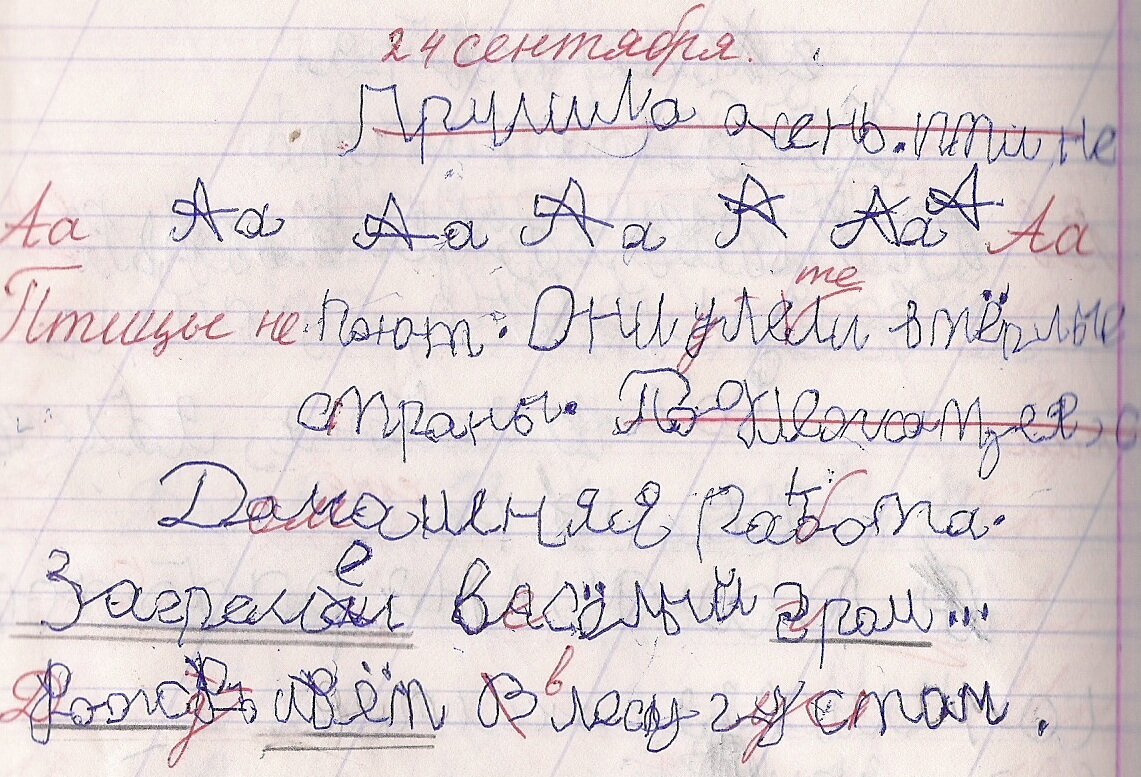 24 сентября.
Пришла осень. пти не
Аа Аа Аа Аа А АаА Аа
Птицы не поют. Они улетели в тёплые
страны.
Домашняя работа.
Загремел васёлый гром...
Дождь идёт в лесу густом.